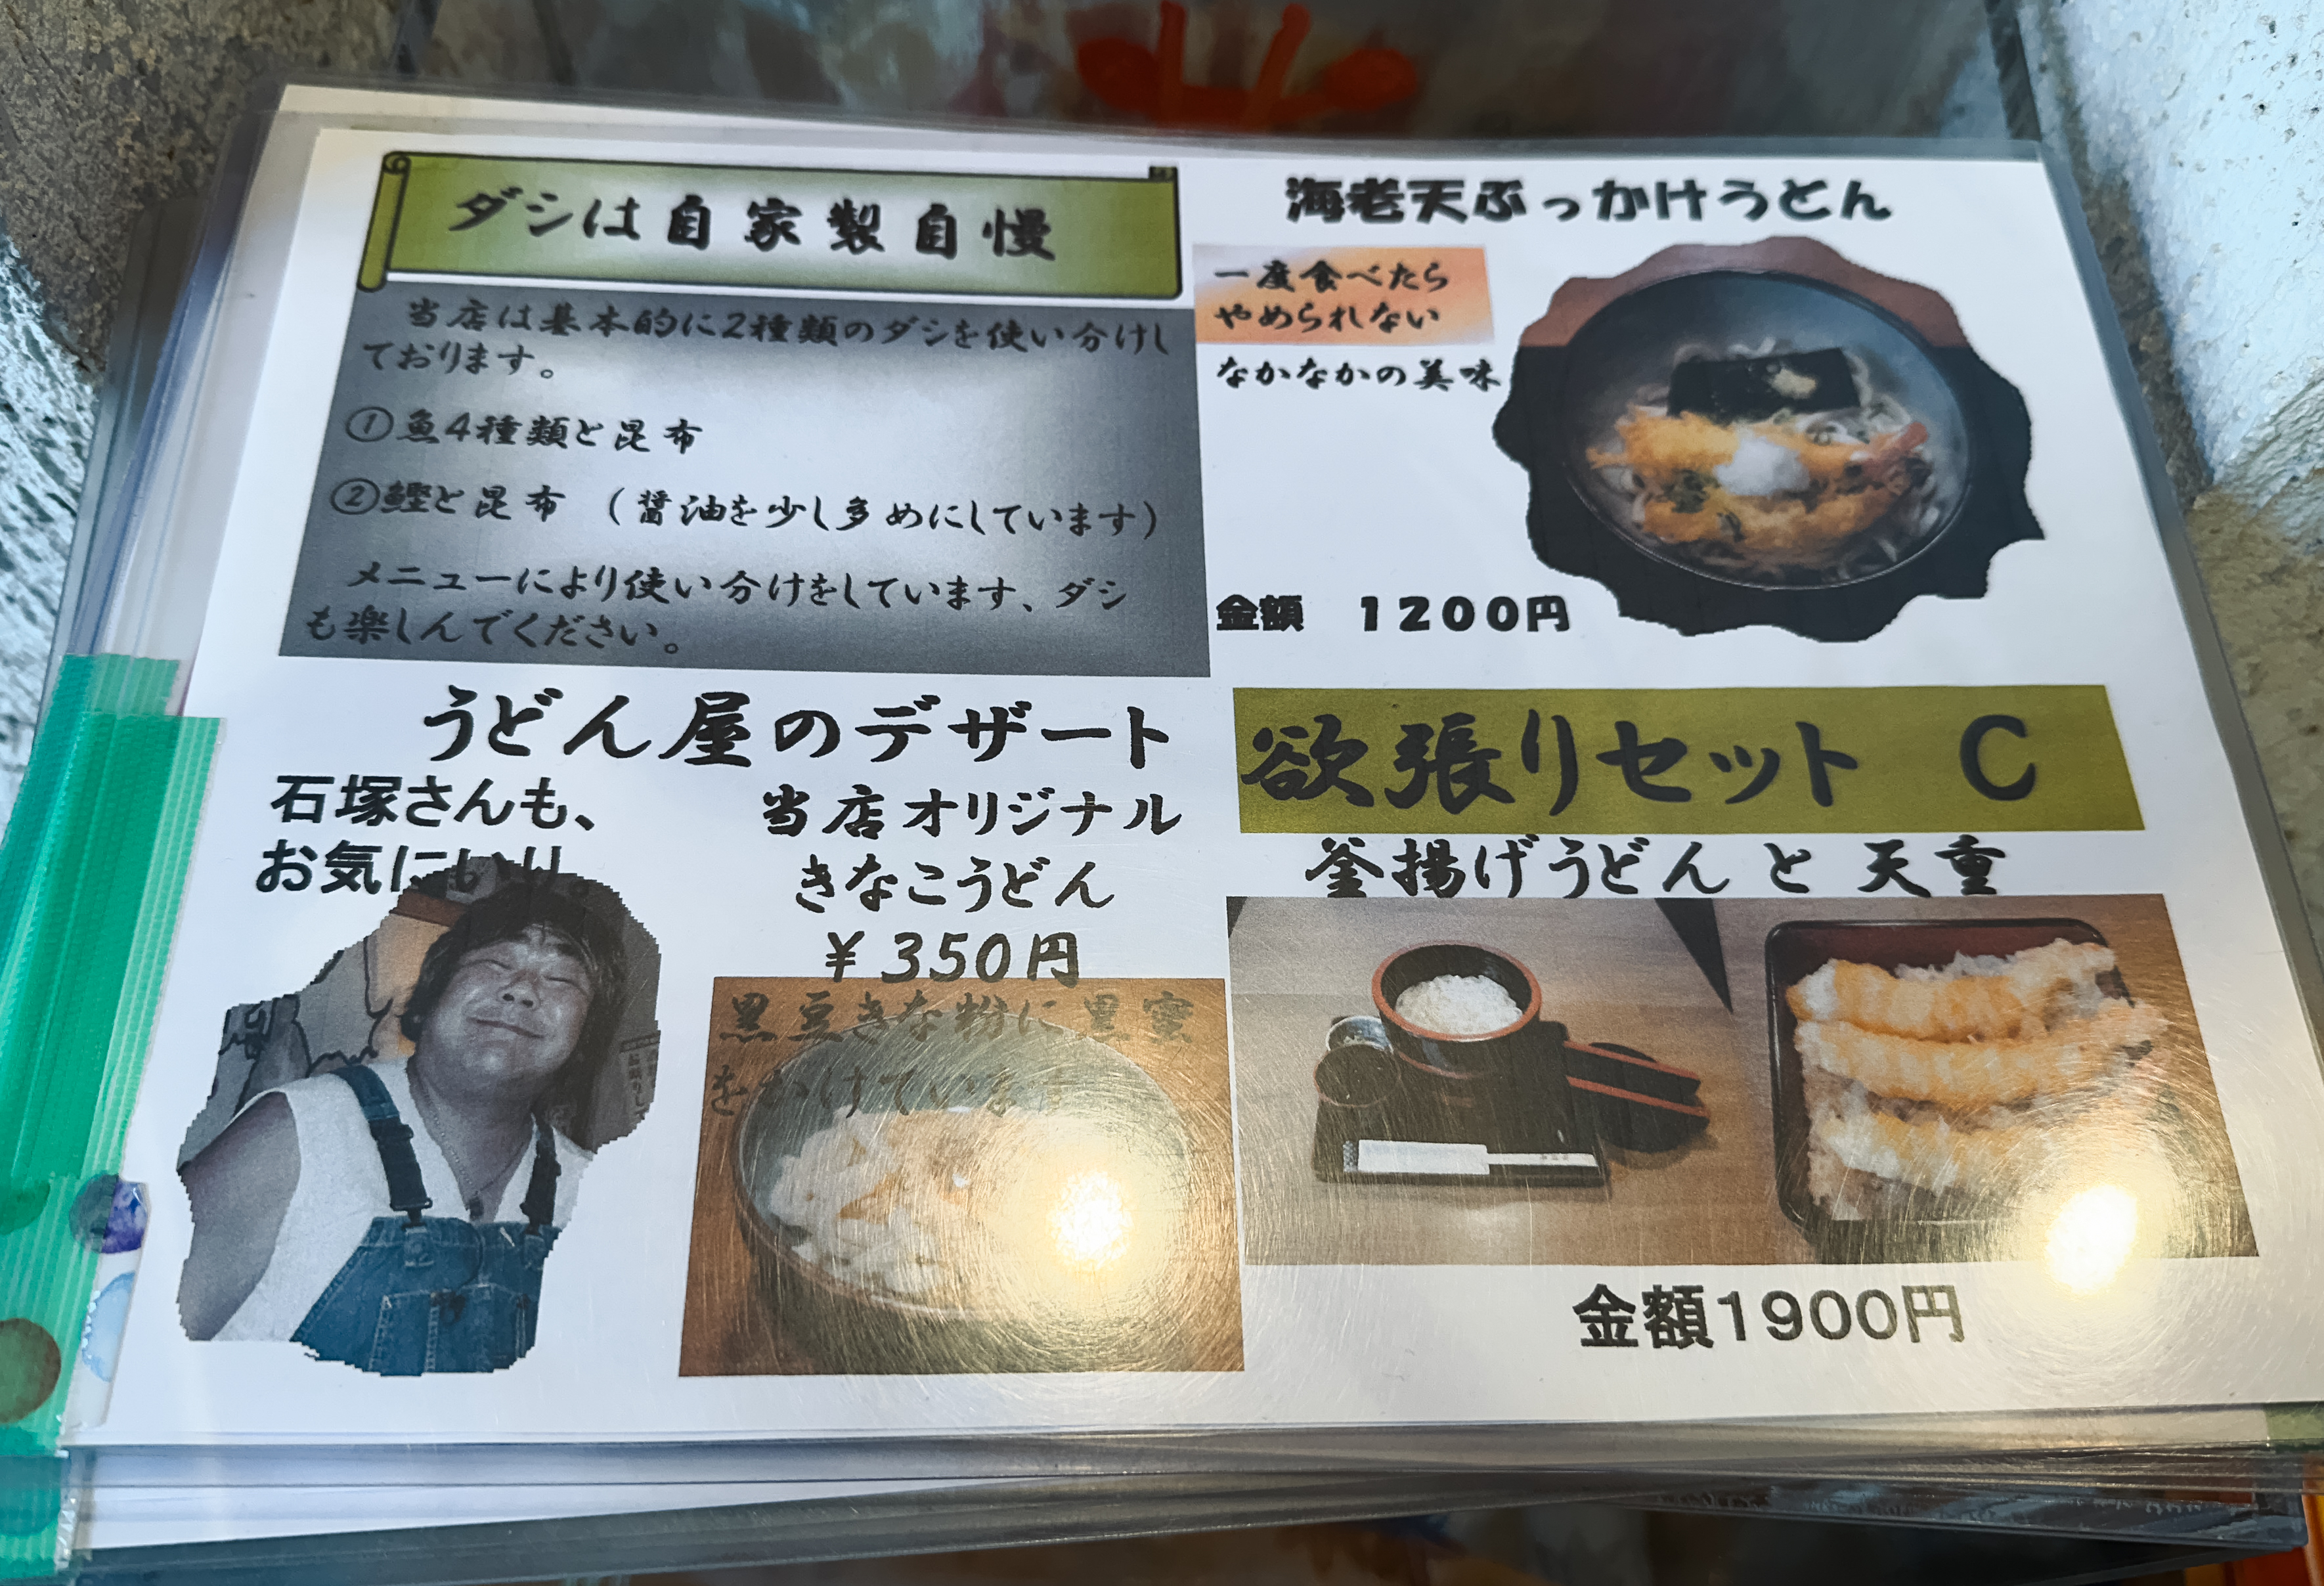 ダシは自家製自慢
当店は基本的に2種類のダシを使い分けし
ております。
①魚4種類と昆布
②鰹と昆布 (醤油を少し多めにしています)
メニューにより使い分けをしています、ダシ
も楽しんでください。
海老天ぶっかけうどん
一度食べたら
やめられない
なかなかの美味
金額 1200円
うどん屋のデザート
石塚さんも、
お気にいり。
当店オリジナル
きなこうどん
¥350円
黒豆きな粉に黒蜜
をかけています
欲張りセット C
釜揚げうどん と 天重
金額1900円